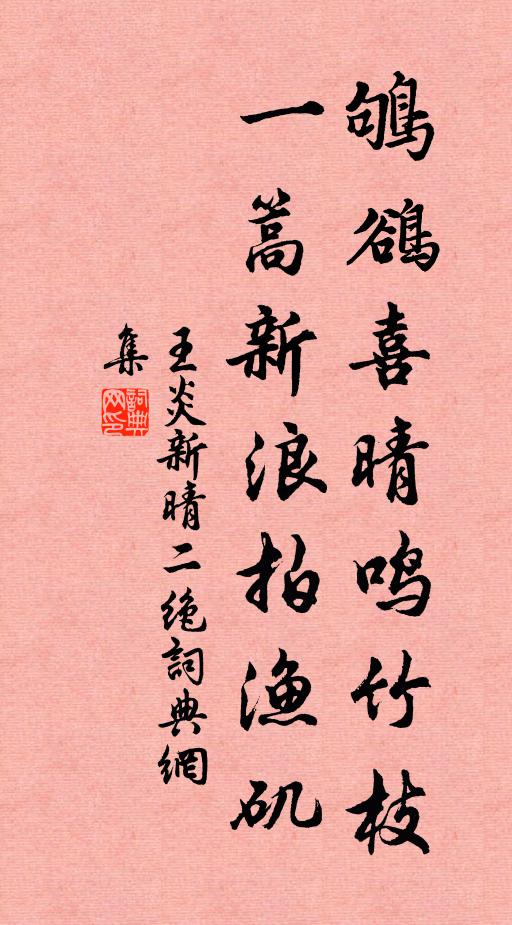 鴝鵒喜晴鸣竹枝
一篙新浪拍渔矶
王炎新晴二绝詞典網
集
詞典网印